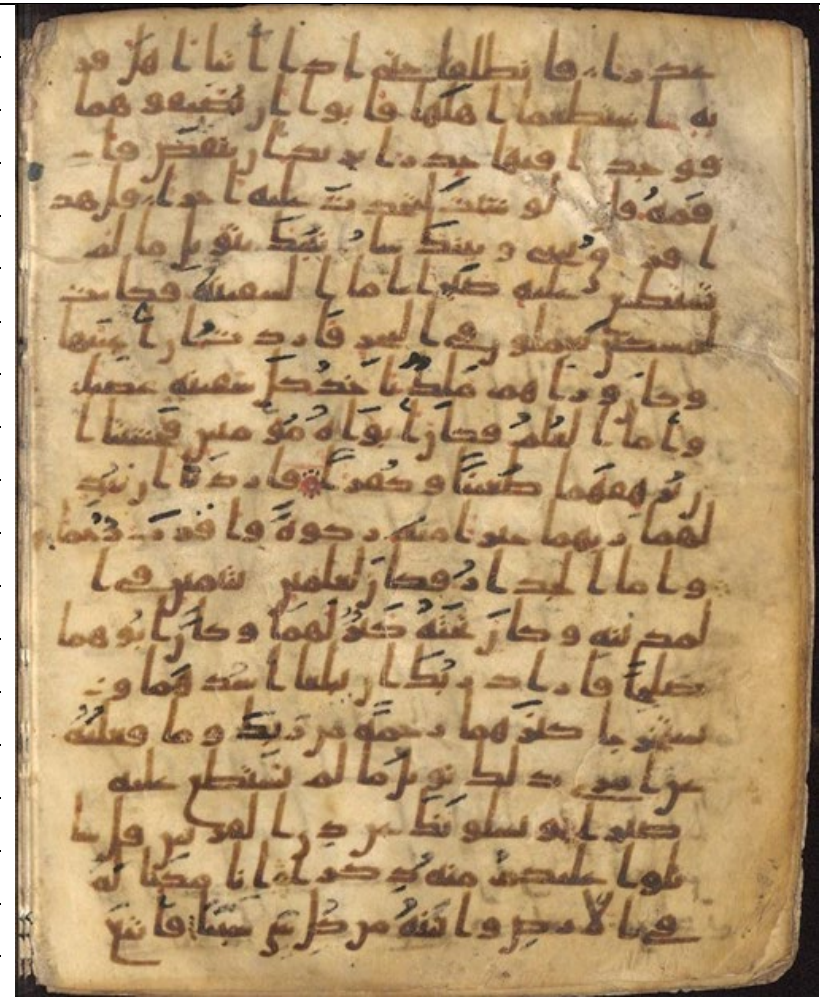 عذرا فانطلقا حتى اذا اتيا اهل قر
يه استطعما اهلها فابوا ان يضيفوهما
فوجدا فيها جدرا يريد ان ينقض فا
قمه قال لو شئت لتخذت عليه اجرا قل هذ
ا فرق بينى و بينك سانبئك بتويل ما لم
تستطع عليه صبرا اما السفينه فكانت
لمسكين يعملون فى البحر فاردت ان اعيبها
وكان وراهم ملك ياخذ كل سفينه غصبا
واما الغلم فكان ابواه مومنين فخشينا ا
ن يرهقهما طغينا وكفرا فاردنا ان يبد
لهما ربهما خيرا منه زكوه واقرب رحما
واما الجدار فكان لغلمين يتيمين فى ا
لمدينه وكان تحته كنز لهما وكان ابوهما
صلحا فاراد ربك ان يبلغا اشدهما و
يستخرجا كنزهما رحمه من ربك وما فعلته
عن امرى ذلك تويل ما لم تسطع عليه
صبرا ويسلونك عن ذى القرنين قل سا
تلوا عليكم منه ذكرا انا مكنا له
فى الارض واتينه من كل شى سببا فاتبع